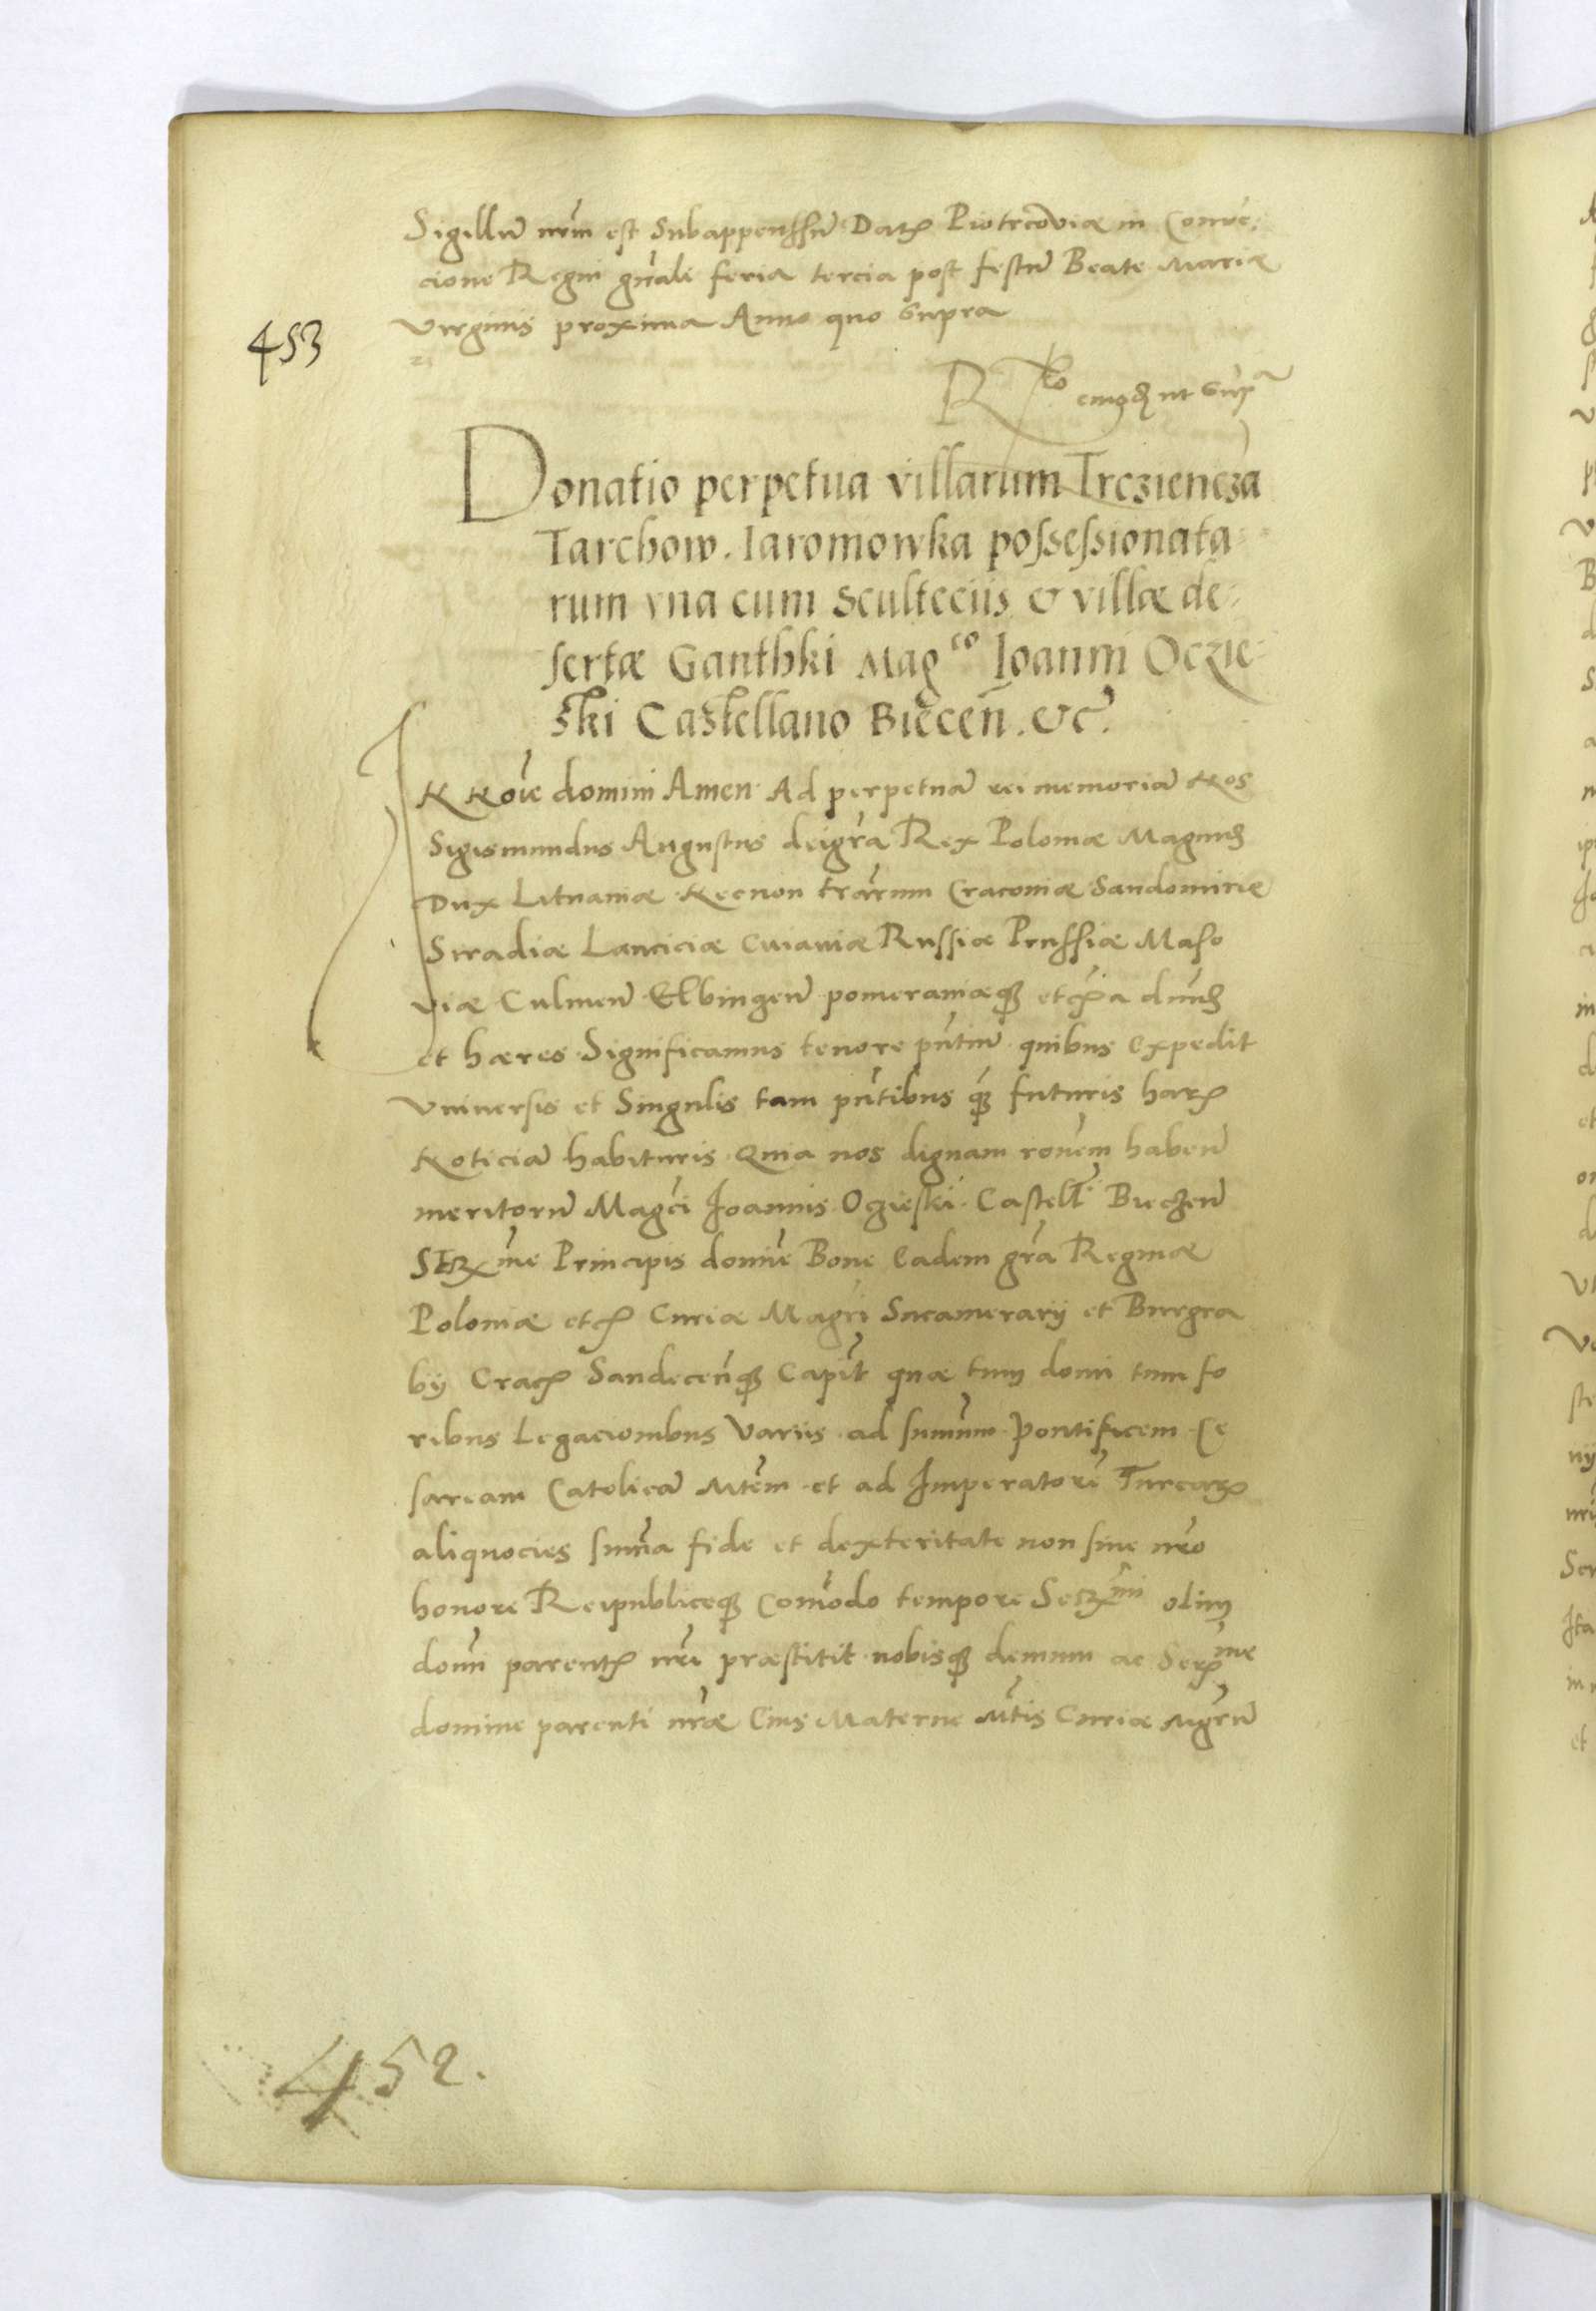 Sigillũ nrm̃ est Subappenssũ Datꝝ Piotrcoviæ in Conve͂:
cione Regni gñali feria tercia post festũ Beate Mariæ
Virginis proxima Anno quo Supra
453
Rᵗⁱᵒ eiusdẽ ut Supᵃ
Donatio perpetua villarum Trcziencza
Tarchow. Iaromowka possessionata:
rum vna cum Sculteciis & villæ de:
sertæ Ganthki Magᶜᵒ Ioanni Oczie:
ski Castellano Biecen̄. &c̃.
IN Noiẽ domini Amen. Ad perpetuã rei memoriã Nos
Sigismundus Augustus dei gr̃a Rex Poloniæ Magnus
Dux Lituaniæ Necnon trar̃um Cracoviæ Sandomiriæ
Siradiæ Lanciciæ Cuiaviæ Russiæ Prussiæ Maso
viæ Culmeñ Elbingeñ pomeraniæqꝫ etcꝝa dnus
et hæres Significamus tenore pñtiũ quibus Expedit
Vniversis et Singulis tam pñtibus qꝫ futuris harꝝ
Noticiã habituris Quia nos dignam roñem habeñ
meritorũ Magci Joannis Oczieski Castelł Bieczeñ
Serꝝᵐᵉ Principis domiñe Bone Eadem gr̃a Reginæ
Poloniæ etcꝝ Curiæ Magri Sucamerarij et Burgra
bij Cracꝝ Sandeceñqꝫ Capit̃ quæ tum domi tum fo
ribus Legacionibus Variis ad sum̃um Pontificem Ce
saream Catolicã Mtem̃ et ad Imperatorẽ Turcarꝝ
aliquocies sum̃a fide et dexteritate non sine nr̃o
honore Reipubliceqꝫ Com̃odo tempore Serꝝᵐⁱ olim
domñ parentꝝ nr̃i præstitit nobisqꝫ demum ac Serꝝᵐᵉ
domine parenti nr̃æ Eius Materne Mt̃is Curiæ Mgr̃ũ
452.